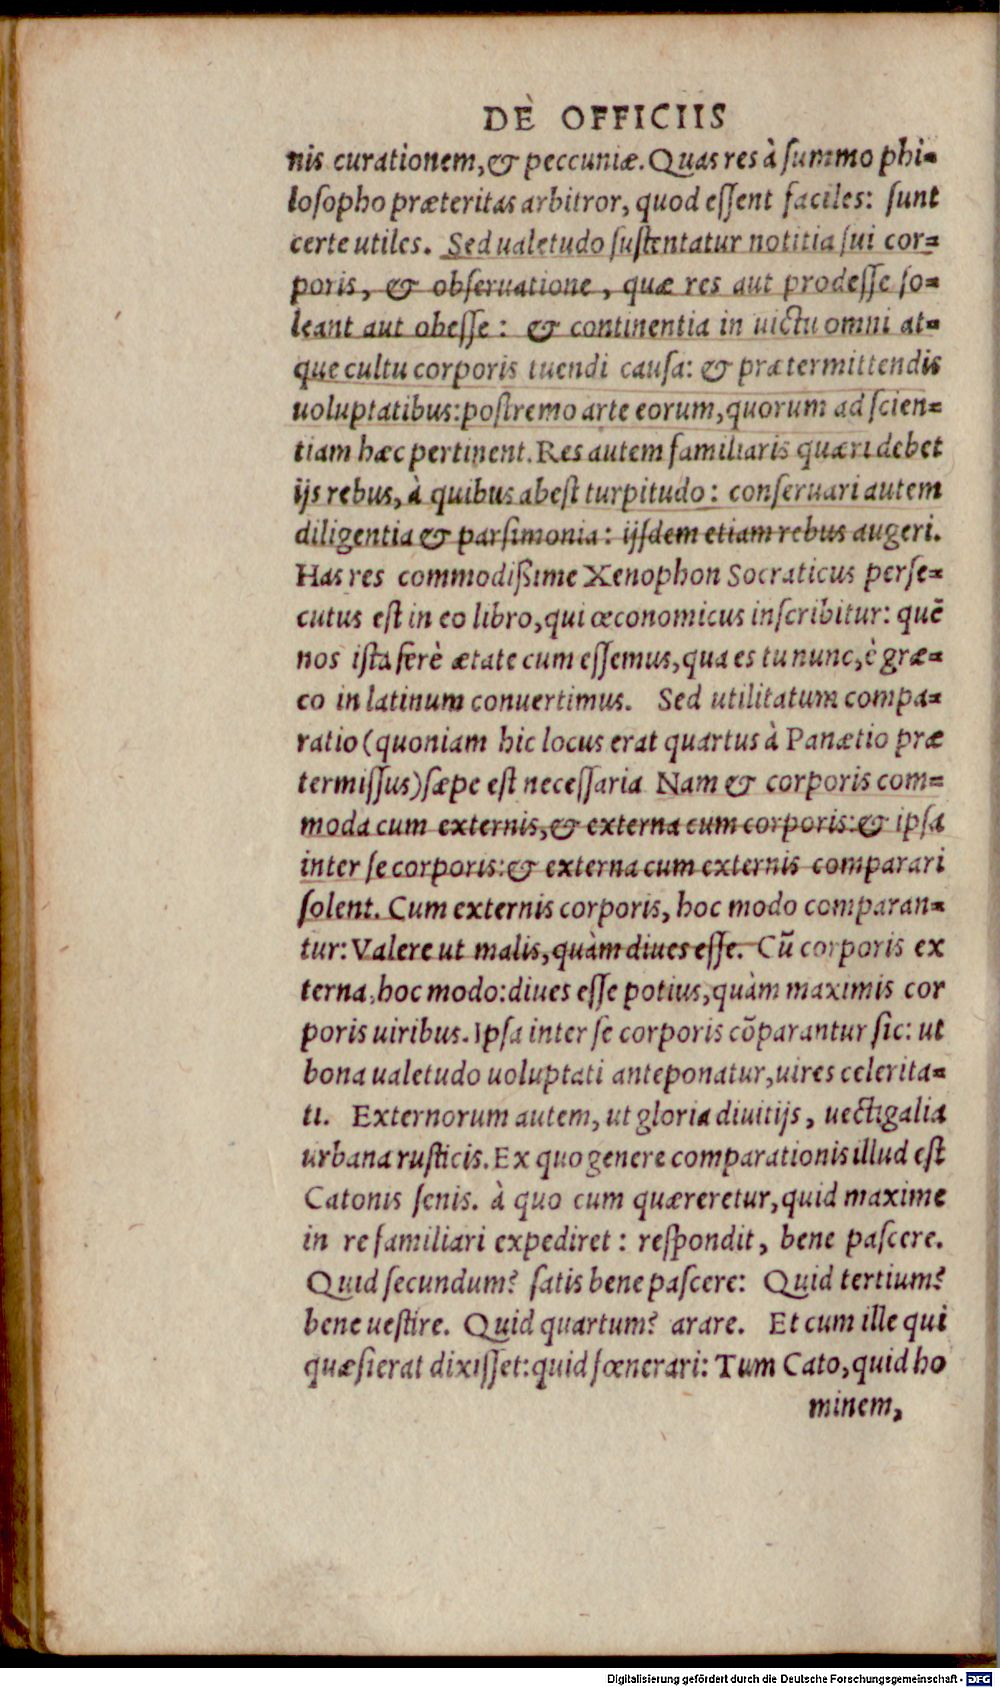 DÈ OFFICIIS
nis curationem, & peccuniæ. Quas res à summo phi-
losopho præteritas arbitror, quod essent faciles: sunt
certe utiles. Sed ualetudo sustentatur notitia sui cor-
poris, & obseruatione, quæ res aut prodesse so-
leant aut obesse: & continentia in uictu omni at-
que cultu corporis tuendi causa: & prætermittendis
uoluptatibus: postremo arte eorum, quorum ad scien-
tiam hæc pertinent. Res autem familiaris quæri debet
ijs rebus, à quibus abest turpitudo: conseruari autem
diligentia & parsimonia: ijsdem etiam rebus augeri.
Has res commodißime Xenophon Socraticus perse-
cutus est in eo libro, qui œconomicus inscribitur: quē
nos ista ferè ætate cum essemus, qua es tu nunc, è græ-
co in latinum conuertimus. Sed utilitatum compa-
ratio (quoniam hic locus erat quartus à Panætio præ
termissus) sæpe est necessaria Nam & corporis com-
moda cum externis, & externa cum corporis: & ipsa
inter se corporis: & externa cum externis comparari
solent. Cum externis corporis, hoc modo comparan-
tur: Valere ut malis, quàm diues esse. Cū corporis ex
terna, hoc modo: diues esse potius, quàm maximis cor
poris uiribus. Ipsa inter se corporis cōparantur sic: ut
bona ualetudo uoluptati anteponatur, uires celerita-
ti. Externorum autem, ut gloria diuitijs, uectigalia
urbana rusticis. Ex quo genere comparationis illud est
Catonis senis. à quo cum quæreretur, quid maxime
in re familiari expediret: respondit, bene pascere.
Quid secundum? satis bene pascere: Quid tertium?
bene uestire. Quid quartum? arare. Et cum ille qui
quæsierat dixisset: quid fœnerari: Tum Cato, quid ho
minem,
Digitalisierung gefördert durch die Deutsche Forschungsgemeinschaft - DFG